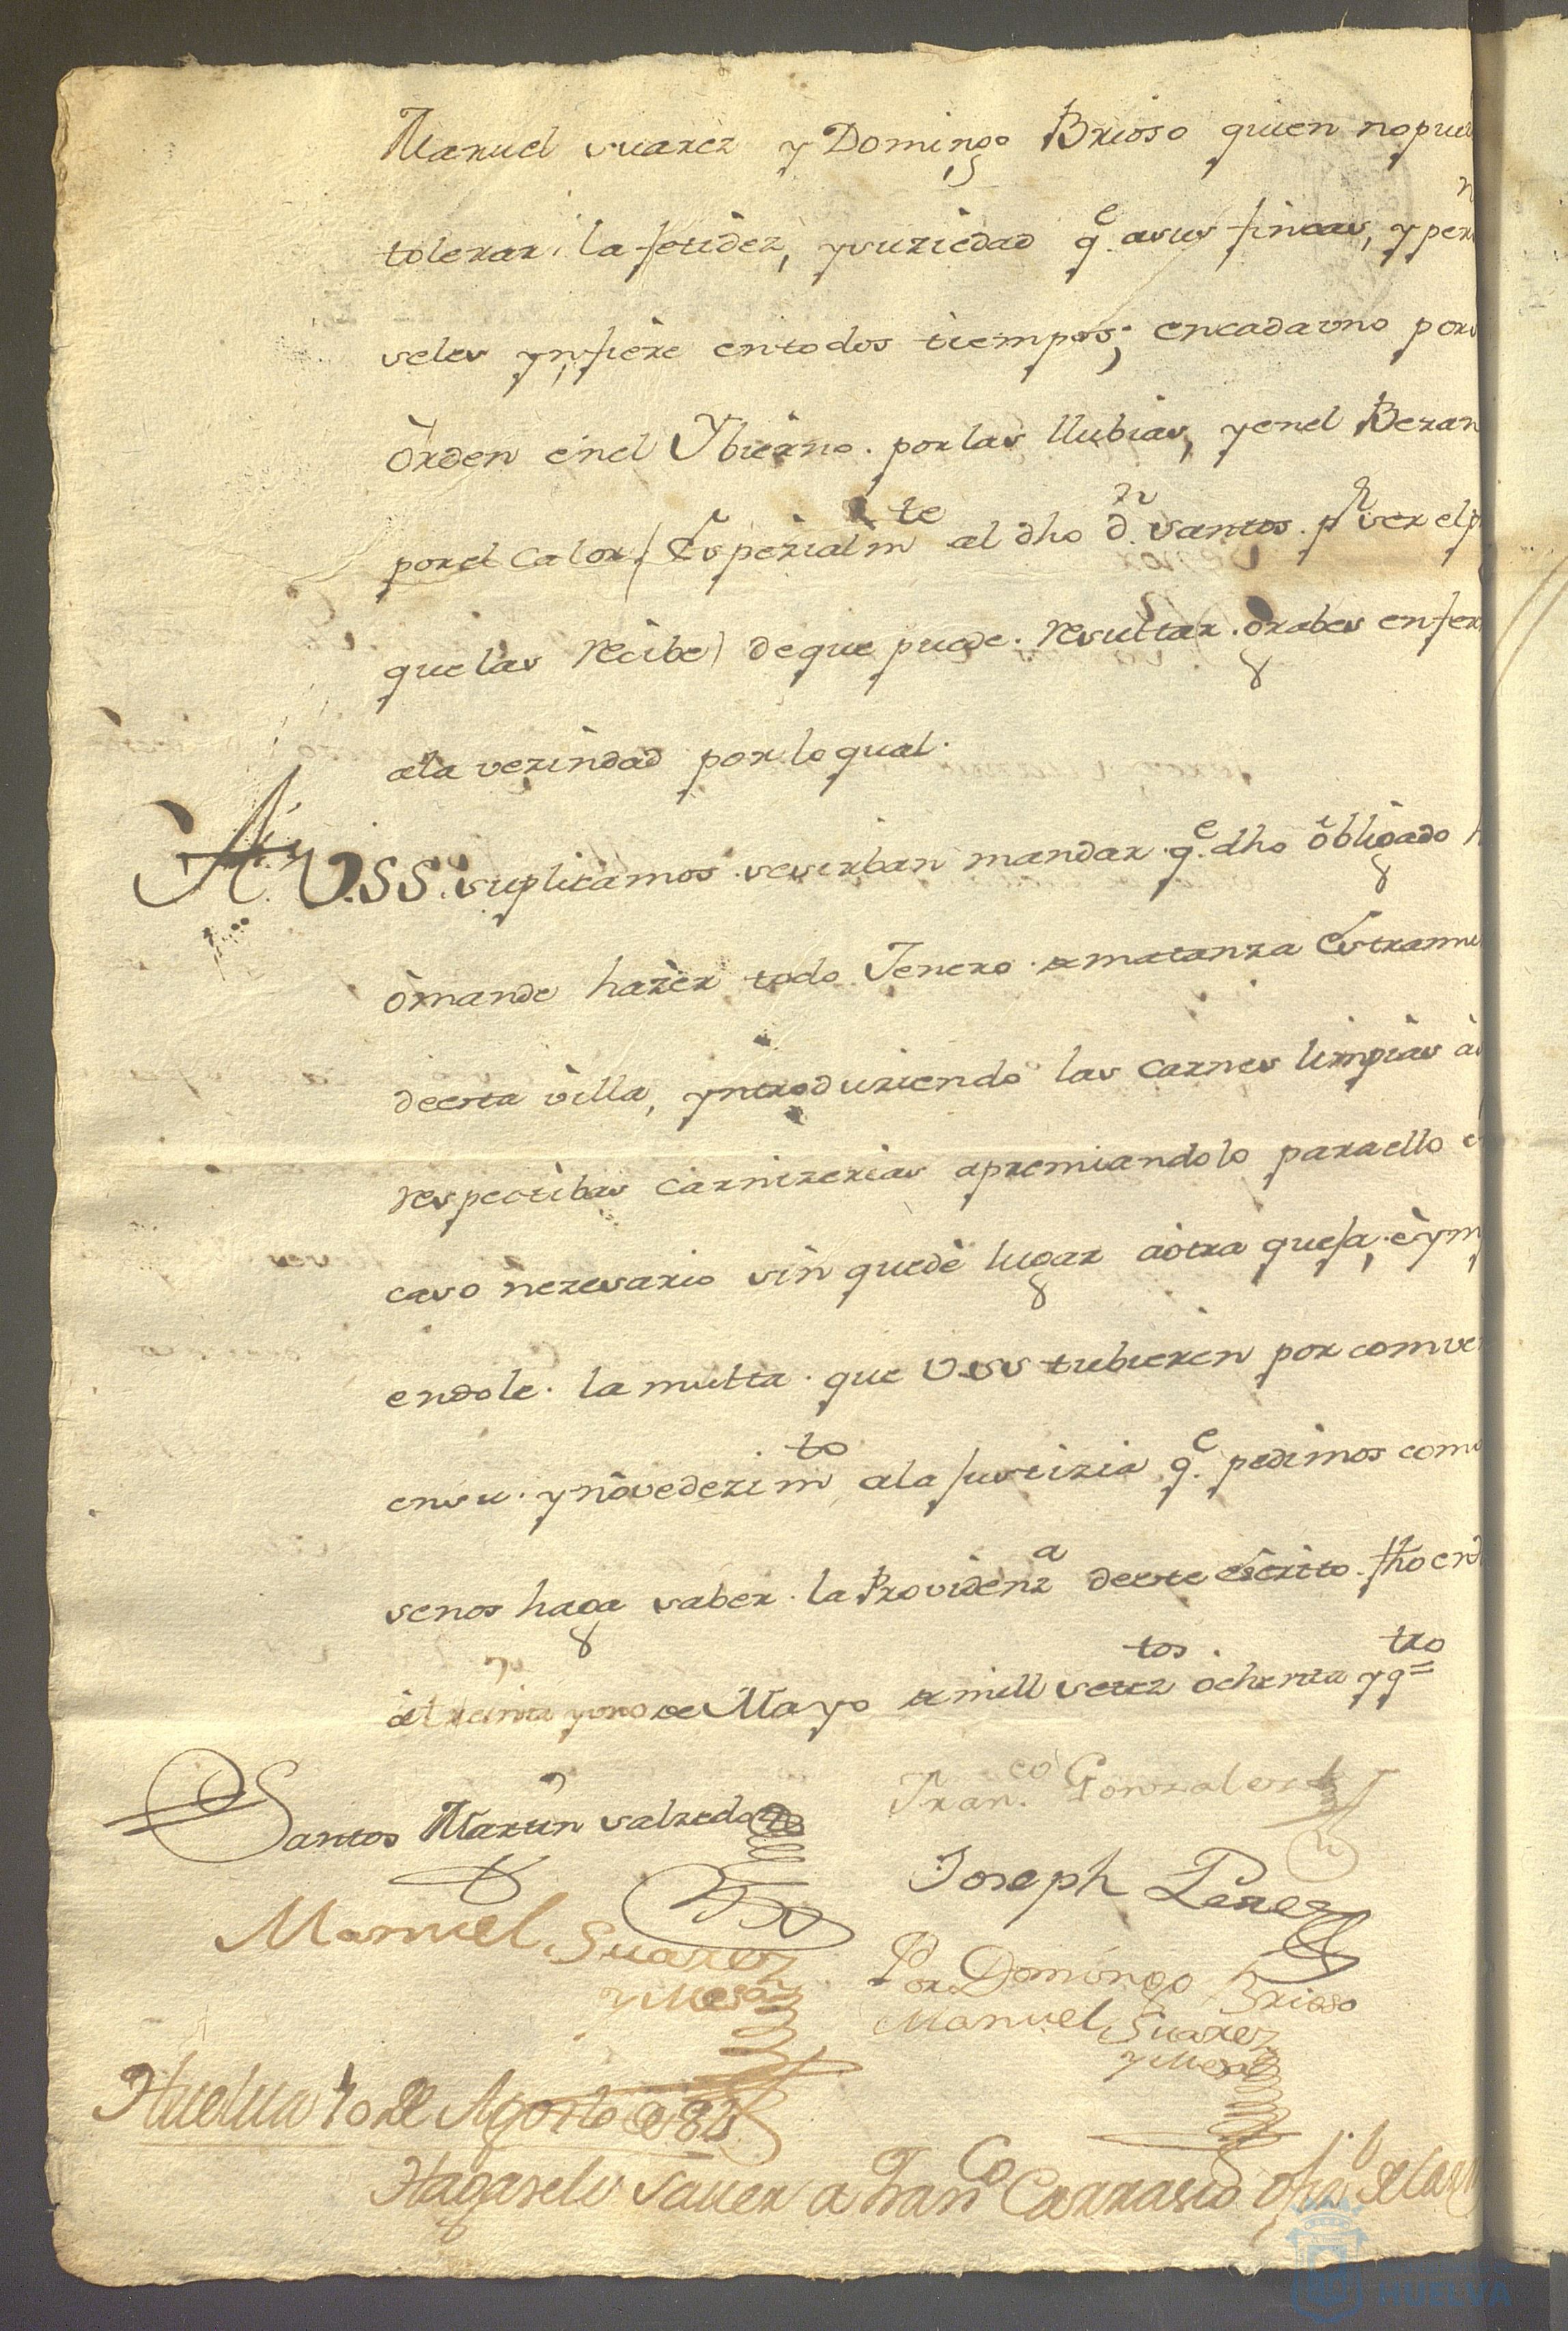 Manuel suarez y Domingo Brioso quien nopue
tolerar, la fetidez, ysuziedad q.e asus fincas, y per
seles ynfiere entodos tiempos; encadauno por
órden enel Ybierno. porlas llubias, yenel Beran
porel Calor/ Espezialm.te al dho d.n santos. p.r ser elp
quelas recibe) deque puede. resultar. grabes enfer
ala vezindad porlo qual.
A. V.SS. suplicamos. sesirban mandar. q.e dho obligado h
ómande hazer todo Jenero de matanza Estramu
deesta villa, yntroduziendo las carnes limpias a
respectibas carnizerias apremiandolo paraello e
caso nezesario sin quedè lugar aotra quefa, èym
endole. la multa. que V.SS tubieren por comve
ensu. ynóvedezim.to ala Justizia q.e pedimos com
senos haga saber. la Providenz.a deeste escrito. fho en
a treinta yuno de Mayo de mill setez.tos ochenta yq.tro
Santos Martin salzedo
Fran.co Gonzales
Joseph Perez
Manuel Suarez
y Mesa
Por Domingo Brioso
Manuel Suarez
y Mesa
Huelua 10 de Agosto de 84
Hagasele sauer a Fran.co Carrasco de la
HUELVA